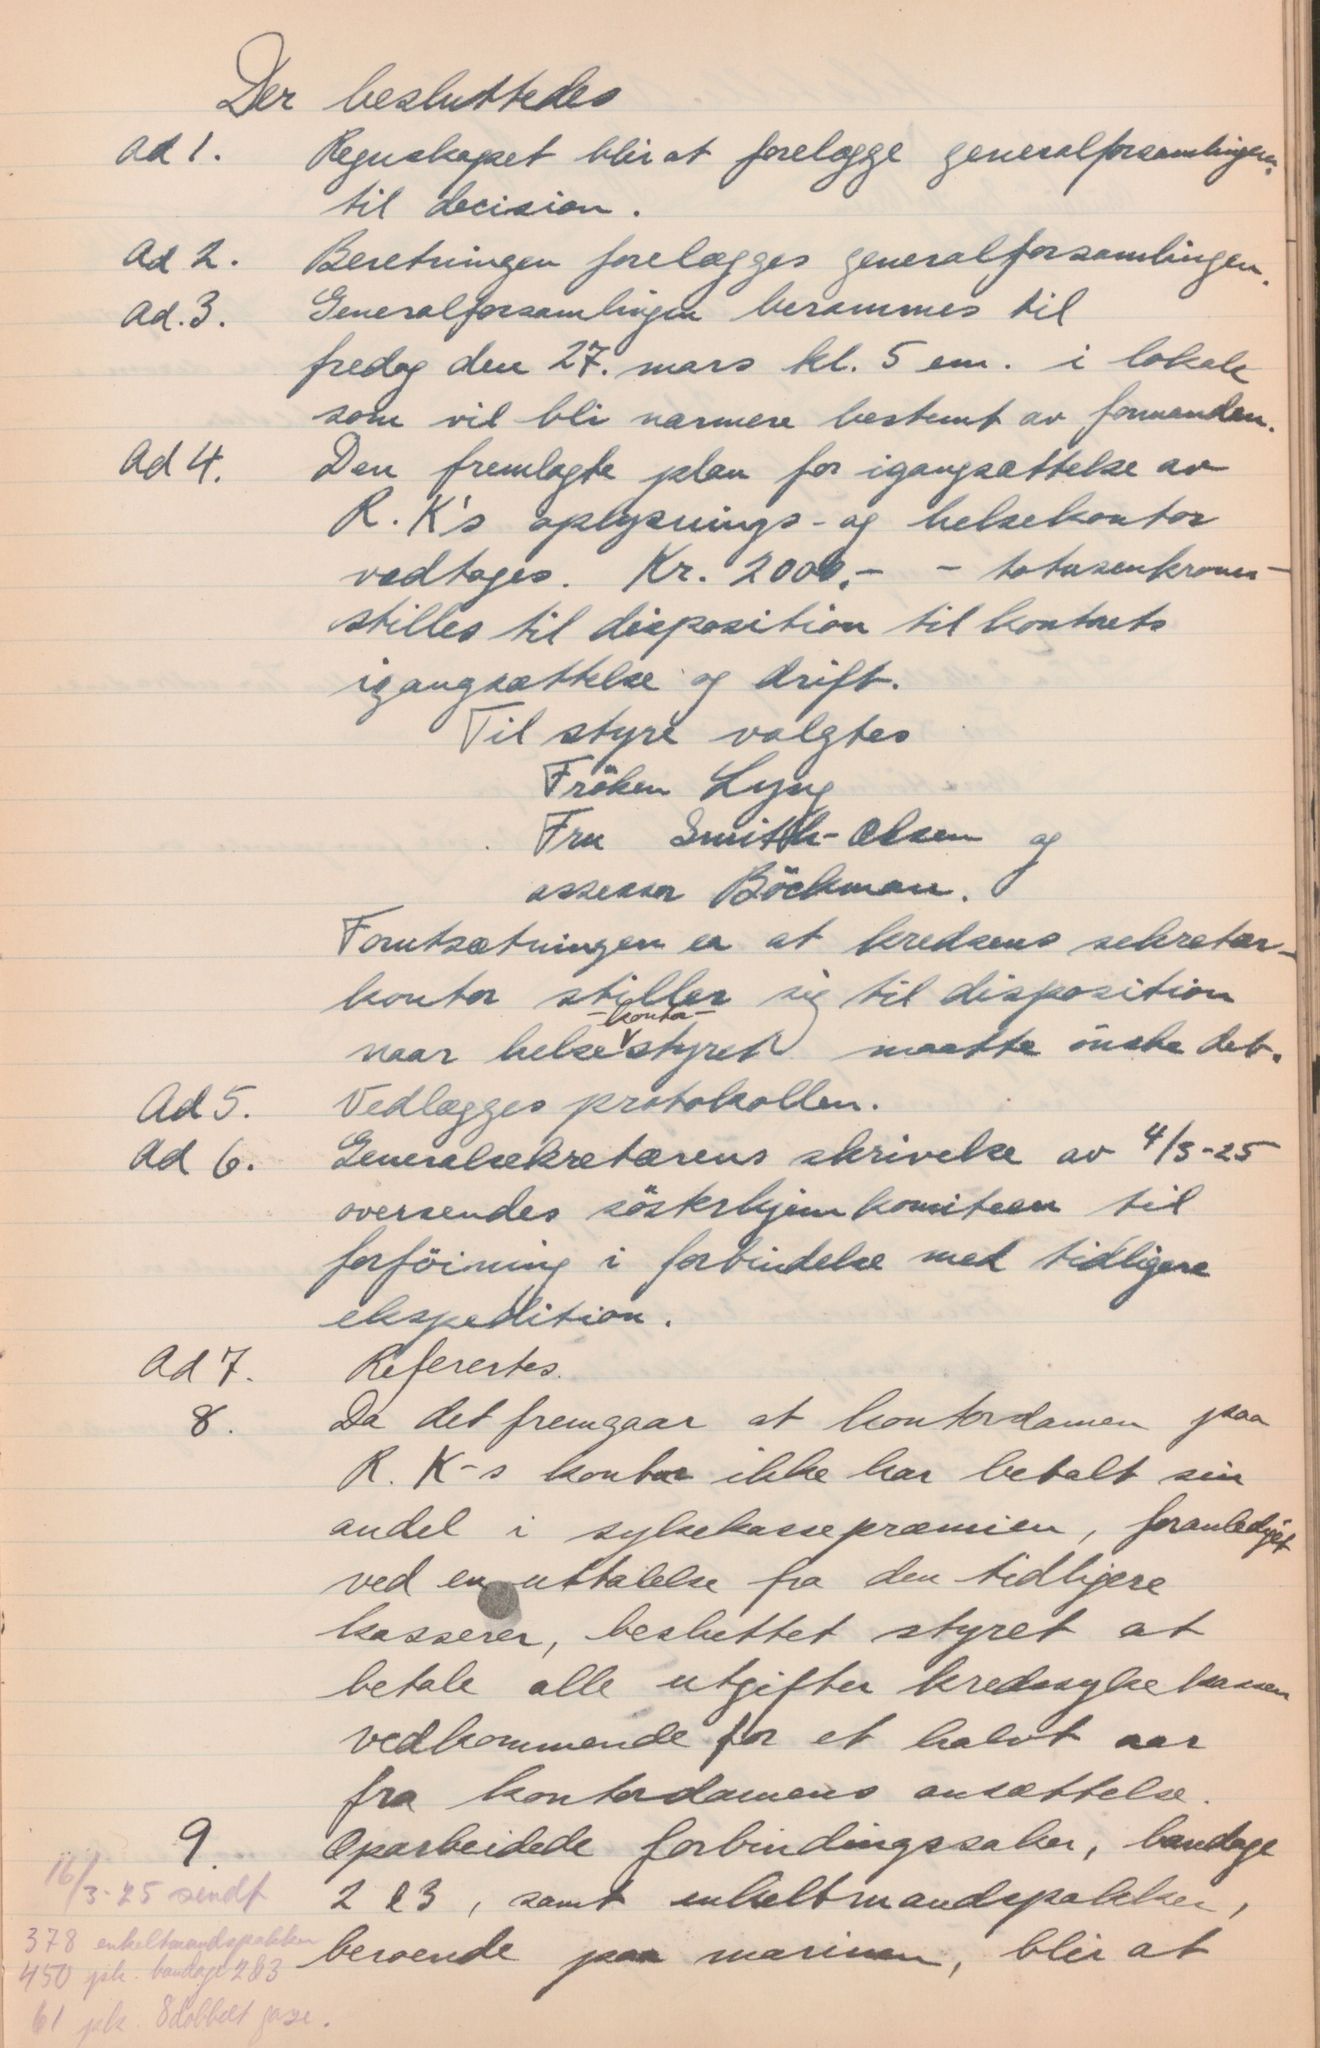 Der besluttedes
Ad 1. Regnskapet blir at forelægge generalforsamlingen
til decision.
Ad 2. Beretningen forelægges generalforsamlingen.
Ad. 3. Generalforsamlingen berammes til
fredag den 27. mars kl. 5 em. i lokale
som vil bli nærmere bestemt av formanden.
Ad 4. Den fremlagte plan for igangsættelse av
R. K's oplysnings- og helsekontor
vedtages. Kr. 2000.- - totusenkroner -
stilles til disposition til kontorets
igangsættelse og drift.
Til styre valgtes
Fröken Lyng
Fru Smith-Olsen og
assessor Böckman.
Forutsætningen er at kredsens sekretær-
kontor stiller sig til disposition
-kontor-
naar helsestyret maatte önske det.
Ad 5. Vedlægges protokollen.
Ad 6. Generalsekretærens skrivelse av 4/3-25
oversendes sösterhjemkomiteen til
forföining i forbindelse med tidligere
ekspedition.
Ad 7. Refererteṡ.
8. Da det fremgaar at kontordamen paa
R. K-s kontor ikke har betalt sin
andel i sykekassepræmien, foranlediget
ved en uttalelse fra den tidligere
kasserer, besluttet styret at
betale alle utgifter kredssykekassen
vedkommende for et halvt aar
fra kontordamens ansættelse.
9. Oparbeidede forbindingssaker, bandage
2 & 3, samt enkeltmandspakker,
beroende paa marinen, blir at
16/3-25 sendt
378 enkeltmandspakker
450 pk. bandage 2&3
61 pk. 8dobbelt gaze.